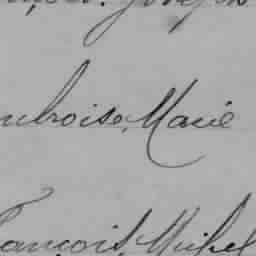 mbroise, Marie
François, Michel